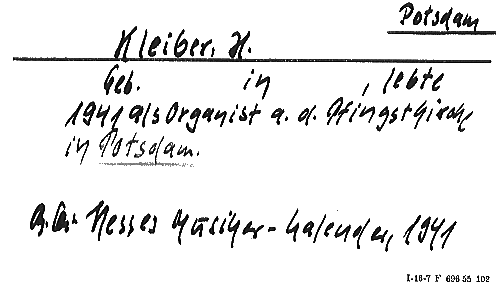 Potsdam
Kleiber, H.
Geb. in , lebte
1941 als Organist a. d. Pfingstkirche
in Potsdam.
Hesses Musiker-Kalender, 1941
I-16-7 F 696 55 102